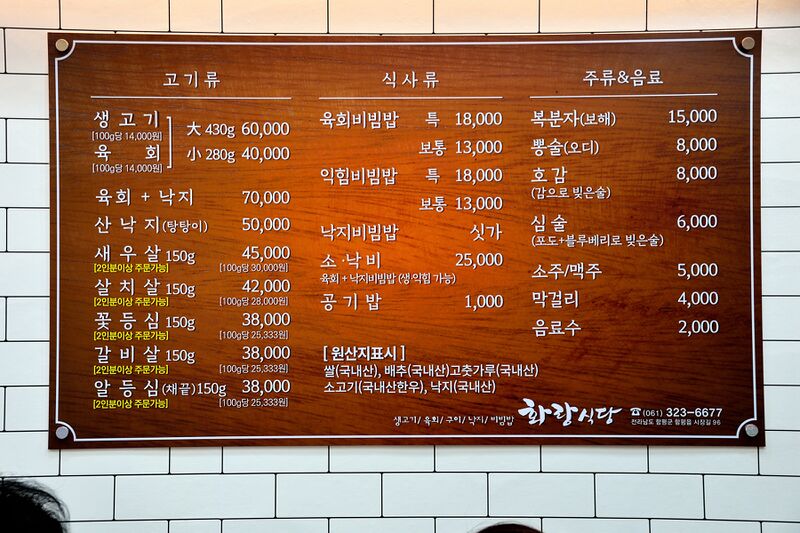 고기류
생고기 大 430g 60,000
[100g당 14,000원]
육 회 小 280g 40,000
[100g당 14,000원]
육회 + 낙지 70,000
산 낙지(탕탕이) 50,000
새 우 살 150g 45,000
[2인분이상 주문가능] [100g당 30,000원]
살 치 살 150g 42,000
[2인분이상 주문가능] [100g당 28,000원]
꽃 등 심 150g 38,000
[2인분이상 주문가능] [100g당 25,333원]
갈 비 살 150g 38,000
[2인분이상 주문가능] [100g당 25,333원]
알 등 심(채끝)150g 38,000
[2인분이상 주문가능] [100g당 25,333원]
식사류
육회비빔밥 특 18,000
보통 13,000
익힘비빔밥 특 18,000
보통 13,000
낙지비빔밥 싯가
소·낙비 25,000
육회 + 낙지비빔밥 (생·익힘 가능)
공 기 밥 1,000
[ 원산지표시 ]
쌀(국내산), 배추(국내산)고춧가루(국내산)
소고기(국내산한우), 낙지(국내산)
주류&음료
복분자(보해) 15,000
뽕술(오디) 8,000
호 감 8,000
(감으로 빚은술)
심 술 6,000
(포도+블루베리로 빚은술)
소주/맥주 5,000
막걸리 4,000
음료수 2,000
생고기/ 육회/ 구이/ 낙지/ 비빔밥 화랑식당 ☎(061) 323-6677
전라남도 함평군 함평읍 시장길 96